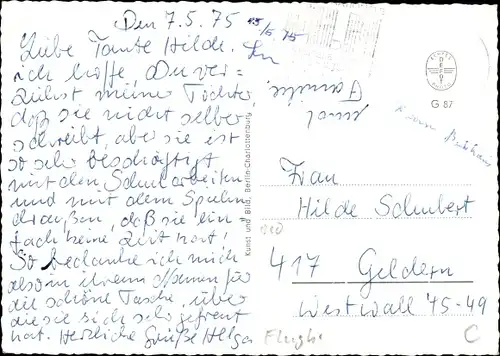 Den 7.5.75
Liebe Tante Hilde.
ich hoffe Du ver=
zeihst meiner Tochter,
daß sie nicht selber
schreibt, aber sie ist
so sehr beschäftigt
mit den Schularbeiten
und mit dem Spielen
draußen, daß sie ein-
fach keine Zeit hat!
So bedanke ich mich
also in ihrem Namen für
die schöne Tasche, über
die sie sich sehr gefreut
hat. Herzliche Grüße Helga
und
Familie.
Kunst und Bild, Berlin-Charlottenburg
G 87
Frau
Hilde Schubert
417 Geldern
Westwall 45-49
C